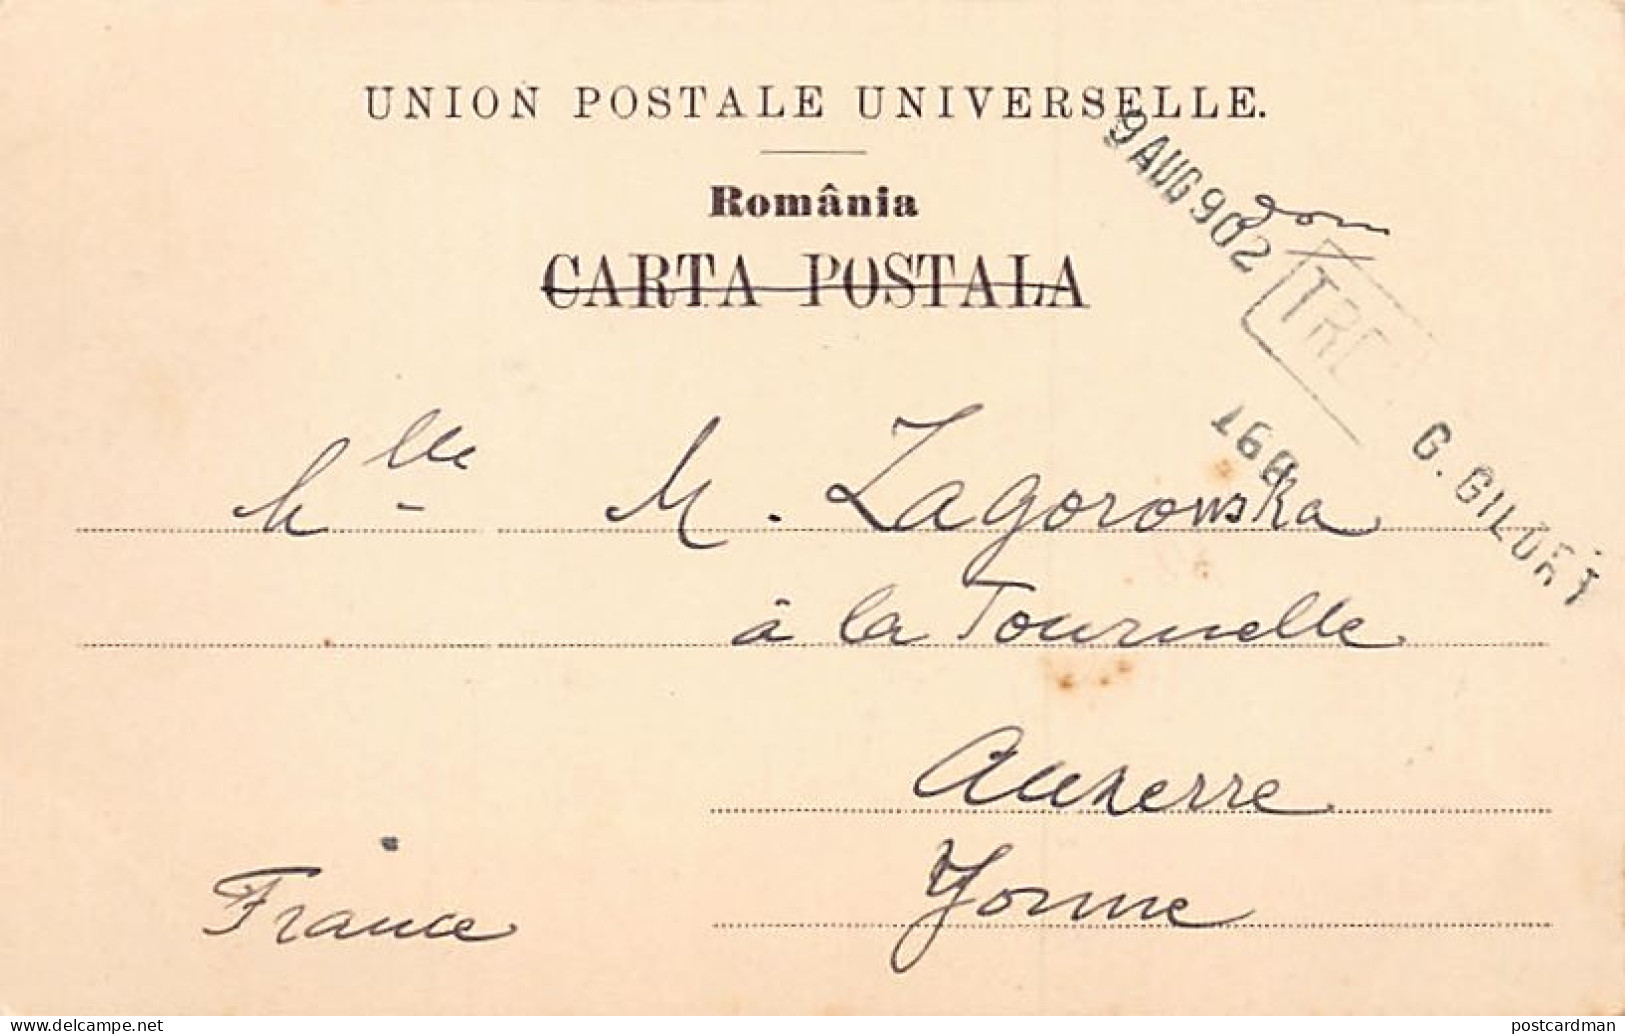 UNION POSTALE UNIVERSELLE.
România
CARTA POSTALA
9 AUG 902
TRE
168
G. GILORT
Mlle M. Zagorowska
à la Tournelle
Auxerre
Yonne
France
postcardman
https://www.delcampe.net